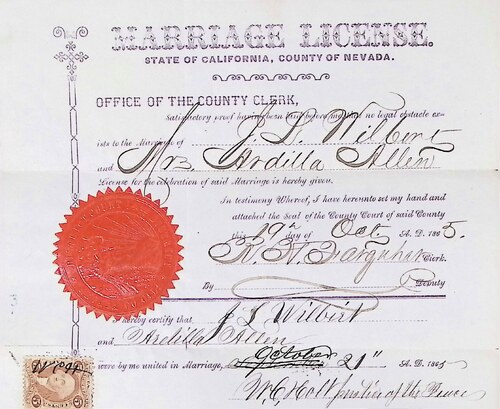 MARRIAGE LICENSE.
STATE OF CALIFORNIA, COUNTY OF NEVADA.
OFFICE OF THE COUNTY CLERK,
Satisfactory proof having been laid before me that no legal obstacle ex-
ists to the Marriage of J L Wilbert
and Mrs. Ardilla Allen
License for the celebration of said Marriage is hereby given.
In testimony Whereof, I have hereunto set my hand and
attached the Seal of the County Court of said County
this 19th day of Oct. A. D. 1865.
R. H. Farquhar Clerk.
By Deputy
I hereby certify that J L Wilbert
and Ardilla Allen
were by me united in Marriage, October 21" A. D. 1865
W. C. Holt Justice of the Peace